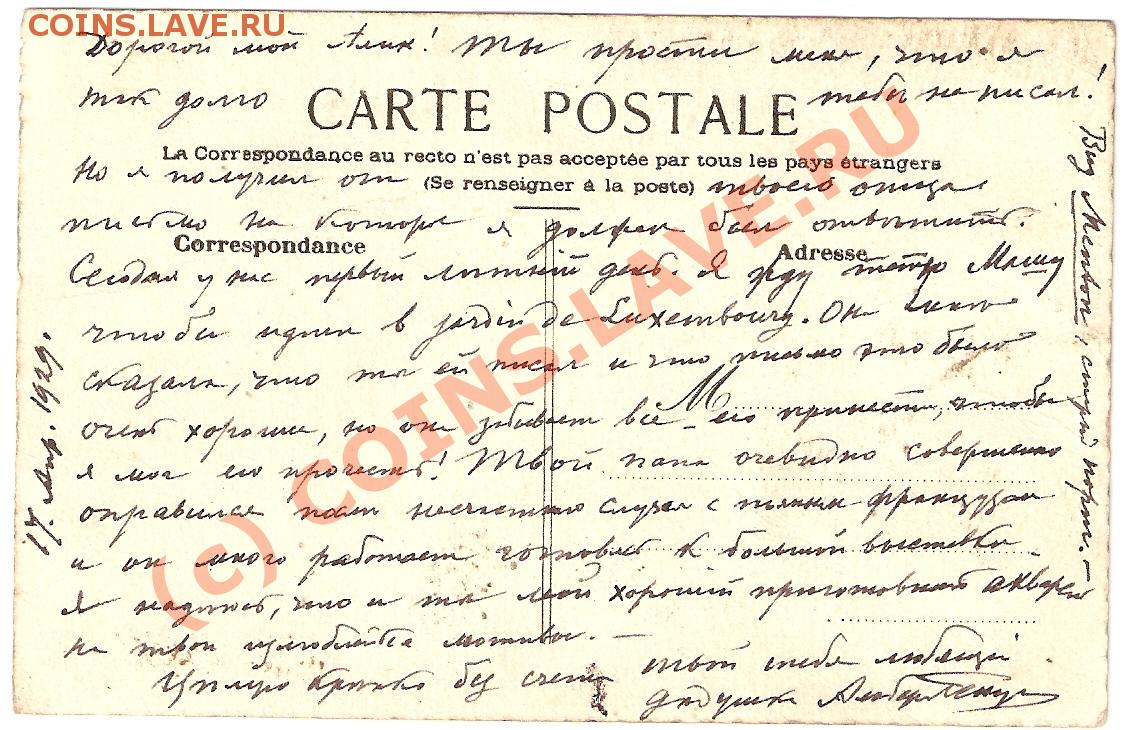 COINS.LAVE.RU
Дорогой мой Алик! Ты прости меня, что я
так долго тебе не писал.
CARTE POSTALE
La Correspondance au recto n'est pas acceptée par tous les pays étrangers
(Se renseigner à la poste)
Но я получил от твоего отца
письмо на которое я должен был отвѣтить.
Correspondance
Adresse
Сегодня у нас первый лѣтний день. Я жду тетю Машу
чтобы идти в jardin de Luxembourg. Она мне
сказала, что ты ей писал и что письмо это было
очень хорошее, но она забывает всё его принести, чтобы
M
я мог его прочесть! Твой папа очевидно совершенно
оправился после несчастного случая с пьяным французом
и он много работает готовясь к большой выставке.
Я надеюсь, что и ты мой хороший приготовишь акварели
на твои излюбленные мотивы. —
Цѣлую крѣпко без счета твой тебя любящий
дѣдушка Альбер Бенуа
17. Апр. 1929.
Вид Menton, старый порт. —
(c) COINS.LAVE.RU